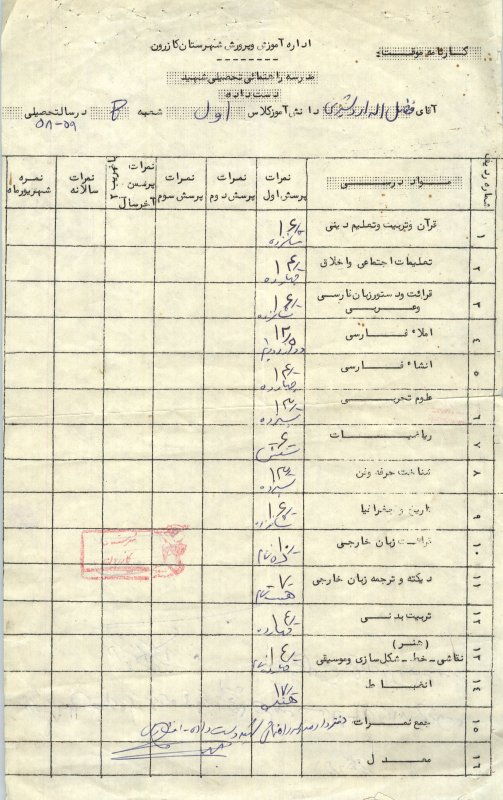 اداره آموزش وپرورش شهرستان کازرون
کارنامه موقت:
مدرسه راهنمائی تحصیلی شهید
دست داده
آقای فضل اله اردشیری دانش آموزکلاس اول شعبه B درسالتحصیلی
۵۸-۵۹
شماره ردیف
مواد درسی
نمرات پرسش اول
نمرات پرسش دوم
نمرات پرسش سوم
نمرات پرسش آخرسال باضریب ۲
نمرات سالانه
نمره شهریورماه
۱ قرآن وتربیت وتعلیم دینی ۱۶/- شانزده
۲ تعلیمات اجتماعی واخلاق ۱۴/- چهارده
۳ قرائت ودستورزبان فارسی وعربی ۱۶/- شانزده
۴ املاء فارسی ۱۲/۵
۵ انشاء فارسی ۱۴/- چهارده
۶ علوم تجربی ۱۳/- سیزده
۷ ریاضیات ۶/- شش
۸ شناخت حرفه وفن ۱۳/- سیزده
۹ تاریخ وجغرافیا ۱۶/- شانزده
۱۰ قرائت زبان خارجی ۱۰/- ده تمام
۱۱ دیکته و ترجمه زبان خارجی ۷/- هفت تمام
۱۲ تربیت بدنی ۱۴/- چهارده
۱۳ (هنر) نقاشی-خط-شکل سازی وموسیقی ۱۴/- چهارده تمام
۱۴ انضباط ۱۷/-
۱۵ جمع نمرات دفتردار مدرسه راهنمائی شهید دست داده
۱۶ معدل